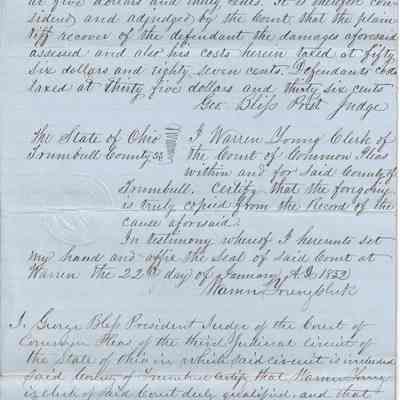 at five dollars and thirty cents. It is therefore con-
sidered and adjudged by the Court that the plain
tiff recover of the defendant the damages aforesaid
assessed and also his costs herein taxed at fifty
six dollars and eighty seven cents. Defendants costs
taxed at thirty five dollars and thirty six cents
Geo. Bliss Prest Judge
The State of Ohio
Trumbull County ss
I Warren Young Clerk of
the Court of Common Pleas
within and for said County of
Trumbull, Certify that the forgoing
is truly copied from the Record of the
cause aforesaid.
In testimony whereof I hereunto set
my hand and affix the Seal of said Court at
Warren the 22d day of January A.D. 1852
Warren Young Clerk
I. George Bliss President Judge of the Court of
Common Pleas of the third Judicial circuit of
the State of Ohio in which said circuit is included
said County of Trumbull Certify that Warren Young
is clerk of said Court duly qualified, and that